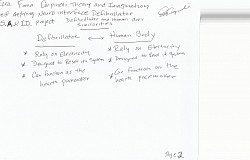 Theory and Imaginations
Neuro interface Defibrillator
S.A.V.I.D. project Defibrillator and Human Body
Similarities
Defibrillator ↔ Human Body
• Rely on Electricity • Rely on Electricity
• Designed to Reset it System • Designed to Reset it System
• Can function as the hearts pacemaker • Can function as the hearts pacemaker
Page 2